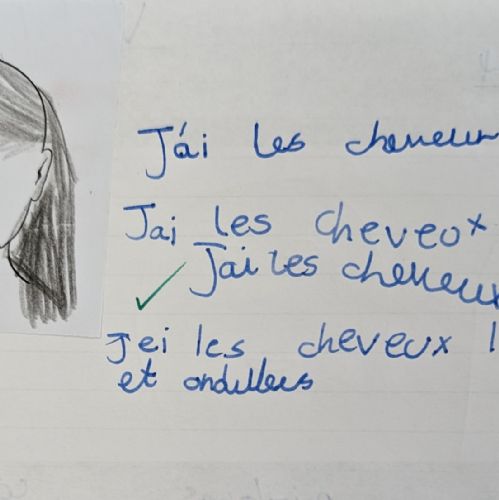 J'ai les cheveux
Jai les cheveox
Jai les cheveux
Jei les cheveux
et ondullees